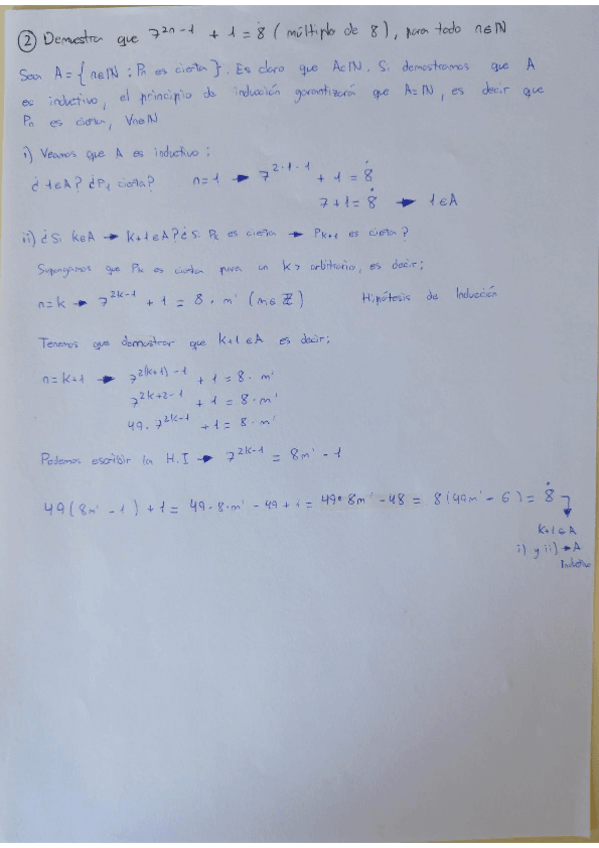 ② Demuestra que 7^{2n-1} + 1 = 8̇ (múltiplo de 8), para todo n∈ℕ
Sean A = { n∈ℕ : Pn es cierta }. Es claro que A⊂ℕ. Si demostramos que A
es inductivo, el principio de inducción garantizará que A=ℕ, es decir que
Pn es cierta, ∀n∈ℕ
i) Veamos que A es inductivo:
¿1∈A? ¿P1 cierta? n=1 → 7^{2·1-1} + 1 = 8̇
7+1 = 8̇ → 1∈A
ii) ¿Si k∈A → k+1∈A? ¿Si Pk es cierta → Pk+1 es cierta?
Supongamos que Pk es cierta para un k> arbitrario, es decir:
n=k → 7^{2k-1} + 1 = 8·m' (m∈ℤ) Hipótesis de Inducción
Tenemos que demostrar que k+1∈A es decir:
n=k+1 → 7^{2(k+1)-1} + 1 = 8·m'
7^{2k+2-1} + 1 = 8·m'
49·7^{2k-1} + 1 = 8·m'
Podemos escribir la H.I → 7^{2k-1} = 8m' - 1
49(8m' - 1) + 1 = 49·8·m' - 49 + 1 = 49·8m' - 48 = 8(49m' - 6) = 8̇
k+1∈A
i) y ii) → A
Inductivo